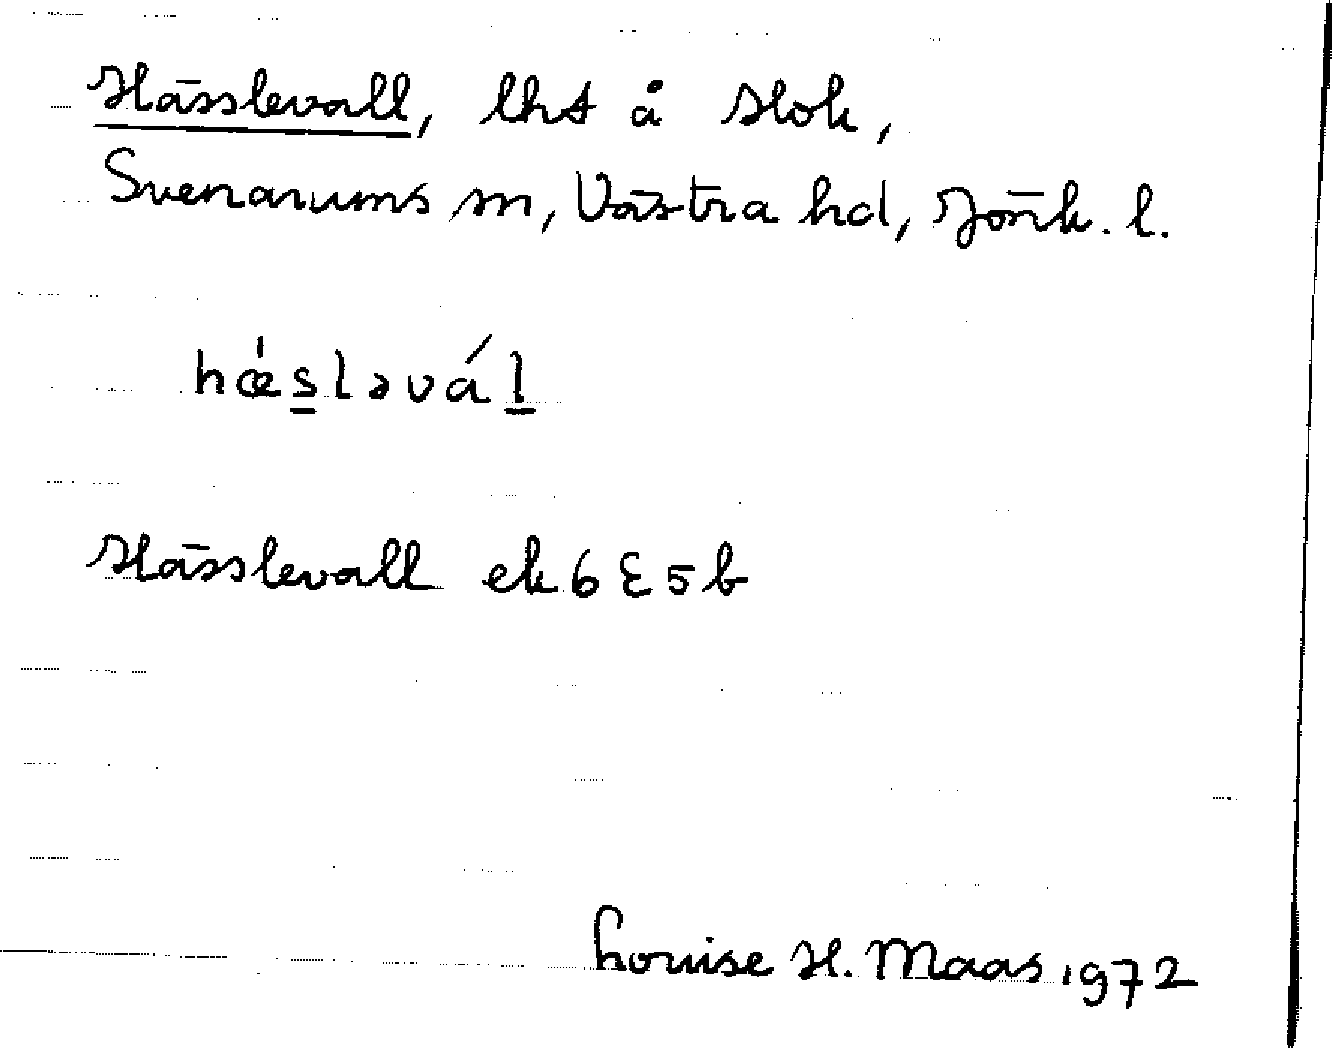 Hässlevall, lht å Hok,
Svenarums sn, Västra hd, Jönk. l.
hǽsləvál
Hässlevall ek 6 E 5 b
Louise H. Maas 1972